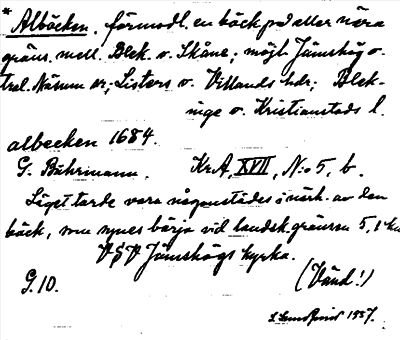 * Albäcken, förmodl. en bäck på eller nära
gräns. mell. Blek. o. Skåne; möjl. Jämshög o.
Näsum sr; Listers o. Villands hdr; Blek-
inge o. Kristianstads l.
albecken 1684.
G. Buhrmann. KrA, XVII, N:o 5, b.
Läget torde vara någonstädes i närh. av den
bäck, som synes börja vid landsk.gränsen 5,1 km
VSV Jämshögs kyrka.
G.10. (Vänd!)
1957.